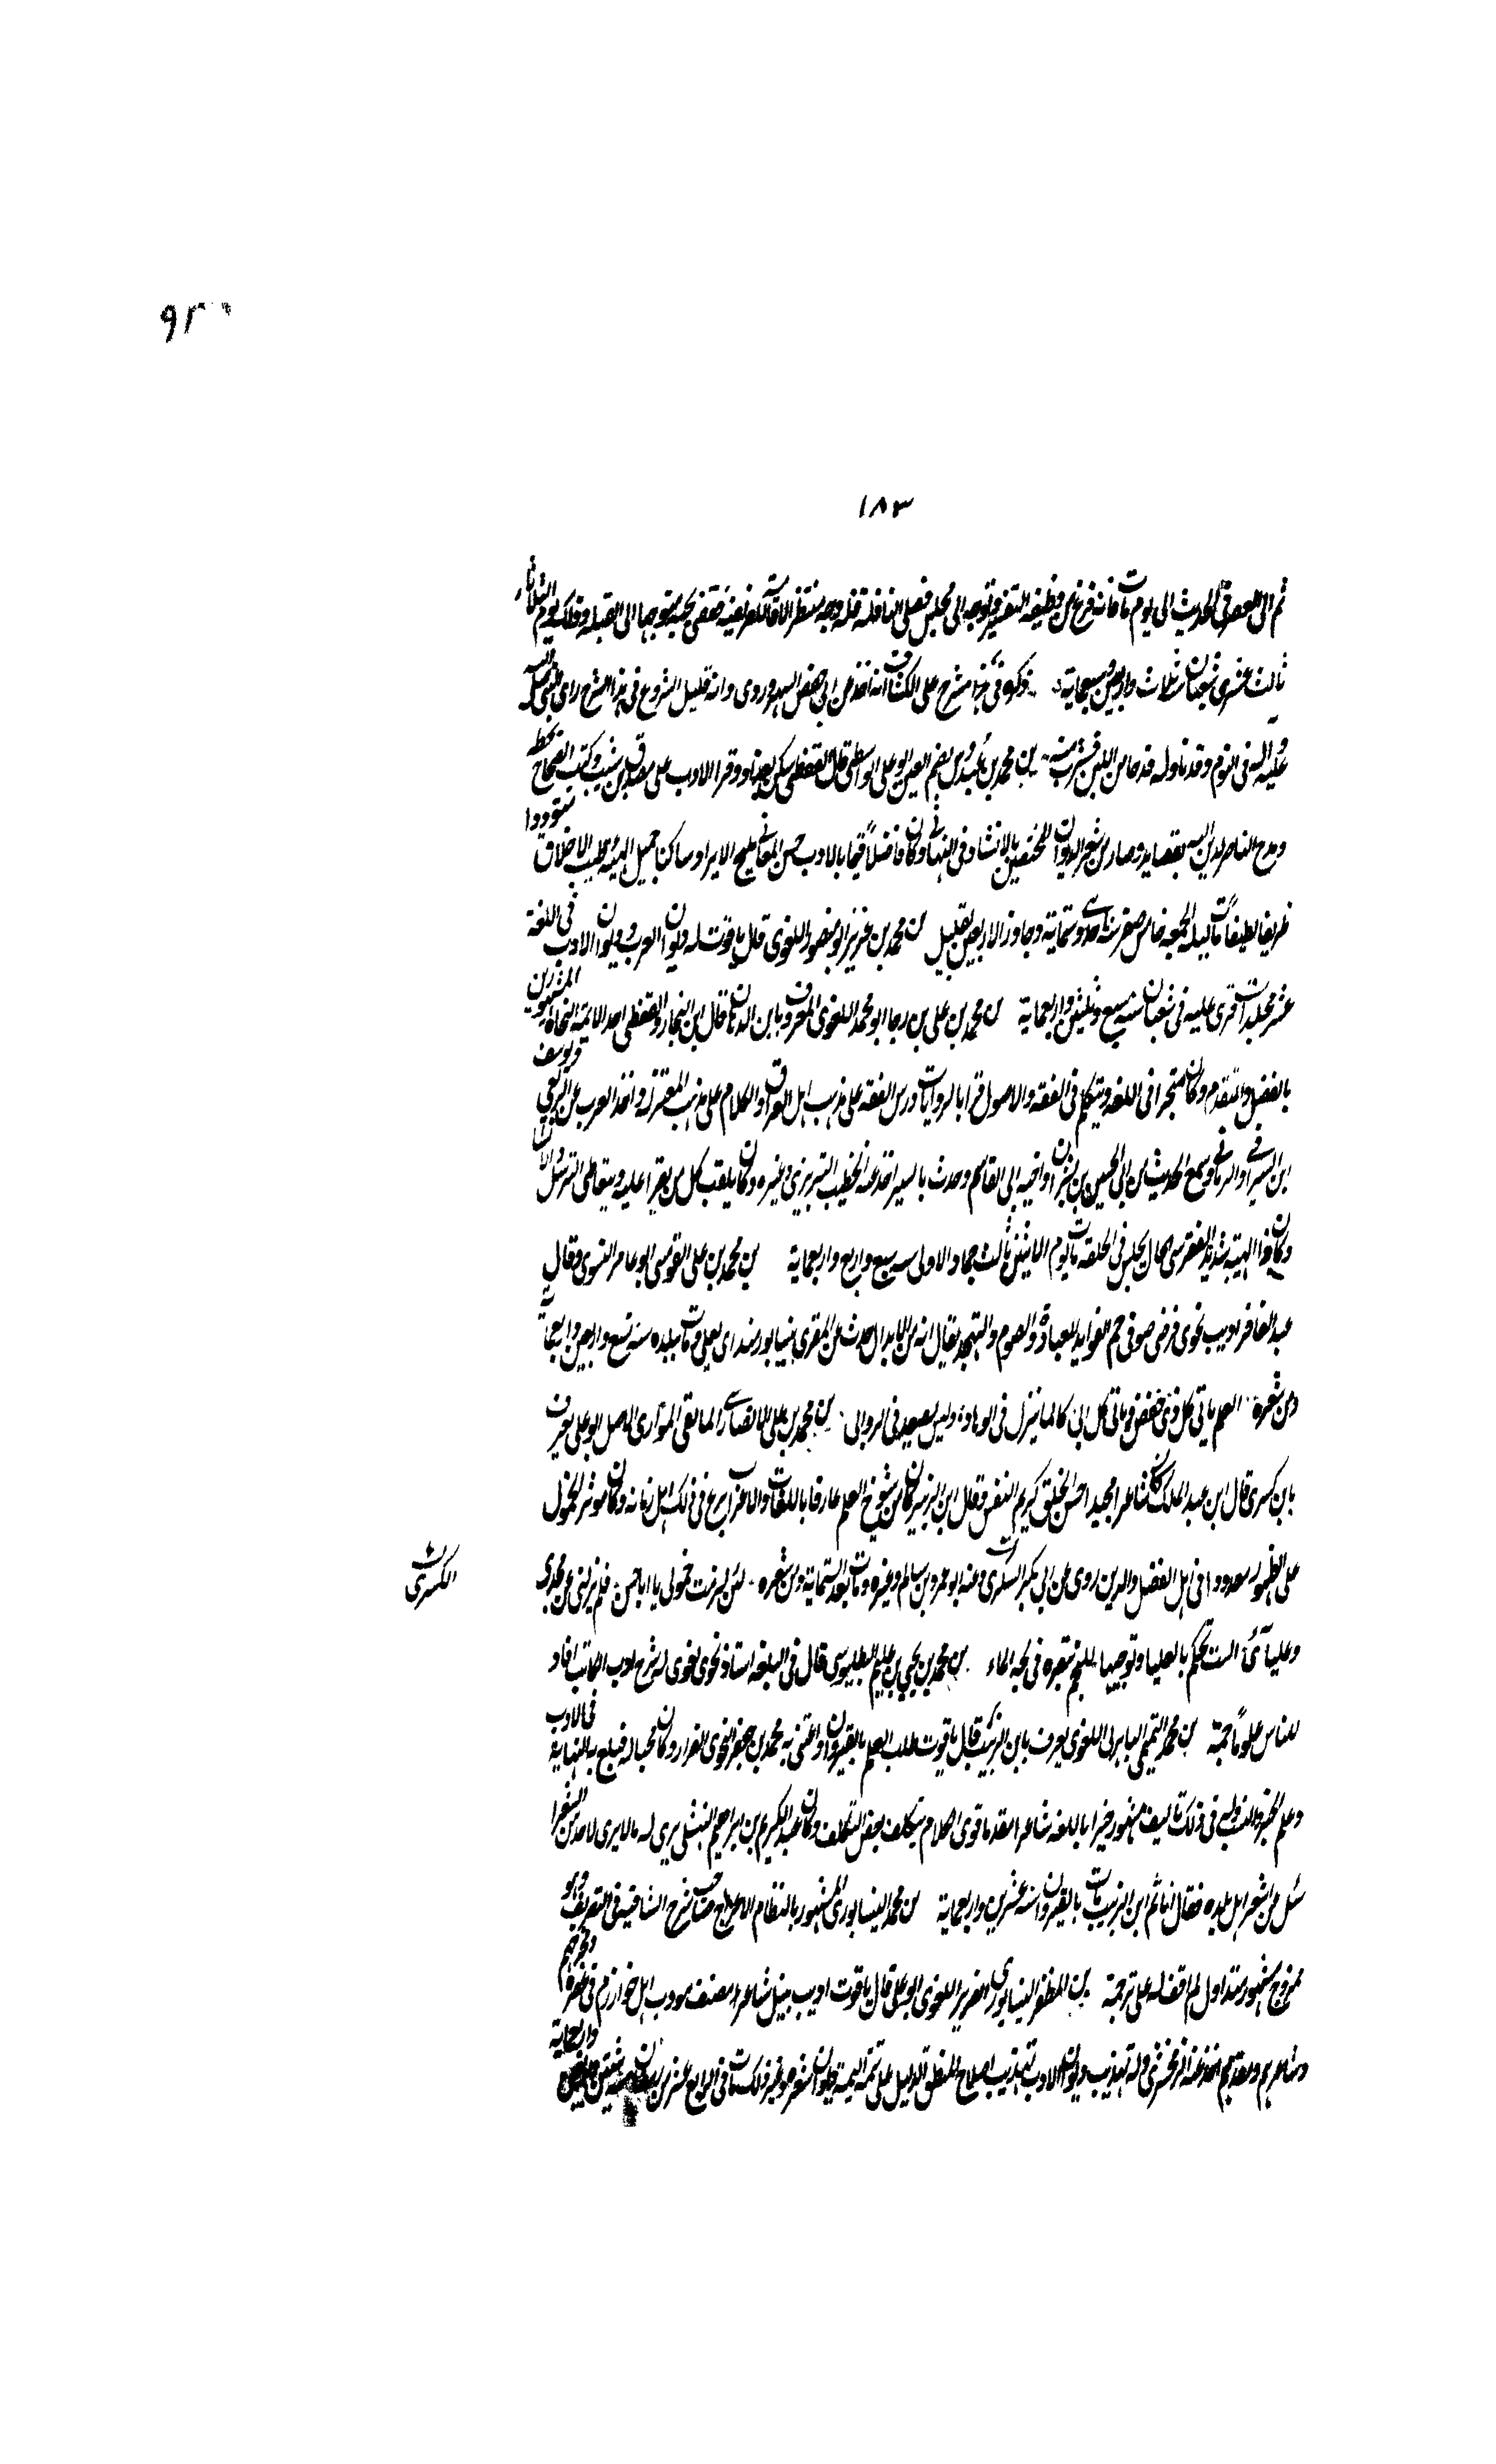 ١٨٣
ثم الى العصر فى الحديث الى يوم مات فانه فرغ من وظيفة التفسير وتوجه الى مجلس فصلى النافلة قبله وجه منتظرا لاقامة الفريضة فقضى نحبه متوجها الى القبلة وذلك يوم الثلاثاء
ثالث عشرى شعبان ثلاث واربعين وسبعماية وذكر فى شرح على الكشاف انه اخذ عن ابى حفص السهروردى وانه قبيل الشروع فى هذا الشرح راى النبى صلى الله
عليه وسلم فى النوم وقد ناوله قدحا من اللبن فشرب منه بن محمد بن عبدوس بضم العين ابو على الواسطى قال القفطى سكن بغداد وقرا الادب على مصدق بن شبيب وكتب الصحاح بخطه
ومدح الناصر لدين الله بقصايد وصار من شعراء الديوان المختصين بالانشاد فى التهانى وكان فاضلاً قيما بالادب حسن المعانى مليح الايراد ساكن جميل الهيئة طيب الاخلاق متوددا
ظريفا لطيفا مات ليلة الجمعة خامس صفر سنة احدى وستماية وجاوز الاربعين بقليل بن محمد بن عزيز ابو منصور اللغوى قال ياقوت له ديوان العرب وديوان الادب فى اللغة
عشر مجلدات قرى عليه فى شعبان سنة سبع وثلثين واربعماية بن محمد بن على بن رجا ابو محمد اللغوى المعروف بابن الدهان قال ابن النجار والقفطى احد الائمة النحاة المشهورين
بالفضل والتقدم وكان متبحرا فى اللغة ويتكلم فى الفقه والاصول قرا بالروايات ودرس الفقه على مذهب اهل العراق والكلام على مذهب المعتزلة واخذ العرب عن الربعى ويوسف
ابن السيرافى والرمانى وسمع الحديث من ابى الحسين بن بشران واخيه ابى القاسم وحدث باليسير اخذ عنه الخطيب التبريزى وغيره وكان يلقب كل من يقرا عليه ويتعاطى الترسل والانشا
وكان بذا الهيئة شديد الفقر سى الحال يجلس فى الحلقة مات يوم الاثنين ثالث جماد الاولى سنة سبع واربع واربعماية بن محمد بن على القومسى ابو عامر النسوى وقال
عبد الغافر اديب نحوى فرضى صوفى جم الفوايد للعبادة والصوم والتهجد يقال انه من الابدال حدث عن المقرى بنيسابور بمسند ابى يعلى ومات ببلده سنة تسع واربعين واربعماية
ومن شعره العلم ياتى كل ذى خفض ويابى كل ابى كالما ينزل فى الوهاد وليس يصعد فى الروابى بن محمد بن على الانصارى المالقى الموارى الاصل ابو على يعرف
بابن كسرى قال ابن عبد الملك كان شاعرا مجيدا حسن الخلق كريم النفس وقال ابن الزبير كان من شيوخ العلم عارفا باللغات والاعراب برع فى ذلك اهل زمانه وكان موثر الخمول
على الظهور معدودا فى اهل الفضل والدين روى عن ابى بكر السكرى وعنه ابو عمرو بن سالم وغيره ومات بعد الستماية ومن شعره لئن لزمت خمولى يا ابا حسن فلم يزلنى عن مجدى
الكسرى
وعليائى الست تحكم بالعليا وتوجبها للنجم تبصره فى لجة الماء بن محمد بن يحيى بن عليم البطليوسى قال فى البلغة استاذ نحوى لغوى له شرح ادب الكاتب افاد
للناس علوماً جمة بن محمد التميمى الباهرى اللغوى يعرف بابن الربيب قال ياقوت طلب العلم بالقيروان واعتنى به محمد بن جعفر النحوى القزاز وكان محبا له فبلغ به النهاية فى الادب
وعلم الخبر والنسب وله فى ذلك تاليف مشهور خبيرا باللغة شاعرا مقدما قوى الكلام يتكلف بعض التكلف وكان عبد الكريم بن ابراهيم النهشلى يرى له مالا يرى لاحد من الشعرا
سئل من اشعر اهل بلده فقال انا ثم ابن الربيب مات بالقيروان سنة عشرين واربعماية بن محمد النيسابورى المشهور بالنظام الاعرج صاحب شرح الشافية فى التصريف وهو
ممزوج مشهور متداول لم اقف له على ترجمة بن المظفر النيسابورى الضرير اللغوى ابو على قال ياقوت اديب نبيل شاعر مصنف مودب اهل خوارزم فى عصره ومخرجهم
وشاعرهم ومقدمهم اخذ عنه الزمخشرى وله تهذيب ديوان الادب تهذيب اصلاح المنطق الذيل على تتمة اليتيمة ديوان شعره وغير ذلك مات فى الرابع عشر من رمضان سنة ثنتين واربعين واربعماية